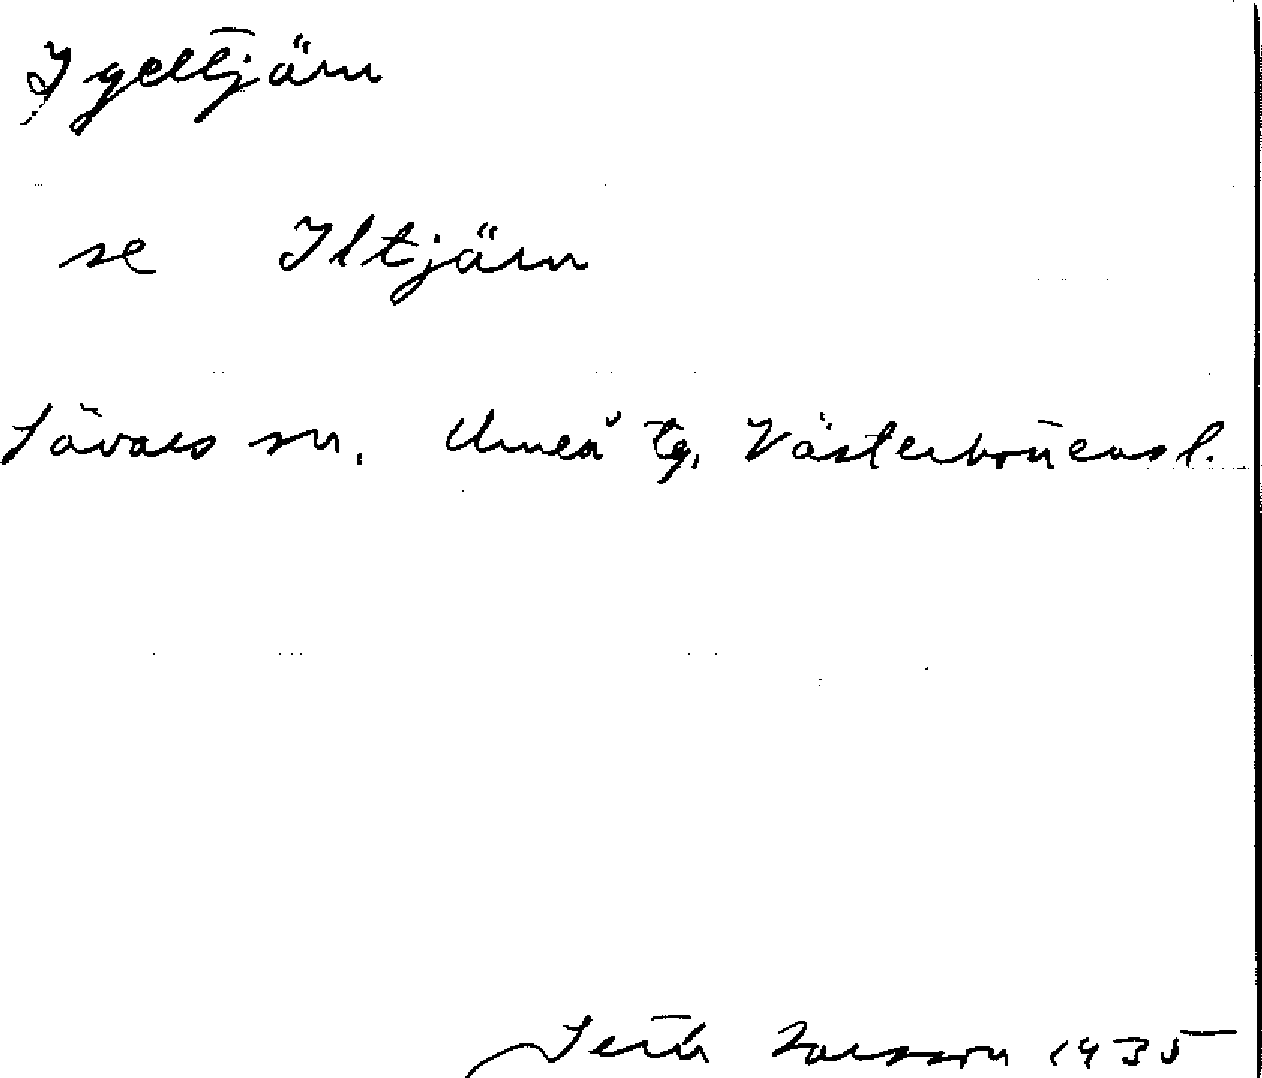 Igeltjärn
se Iltjärn
Sävars sn. Umeå tg. Västerbottens l.
Seth Larsson 1935